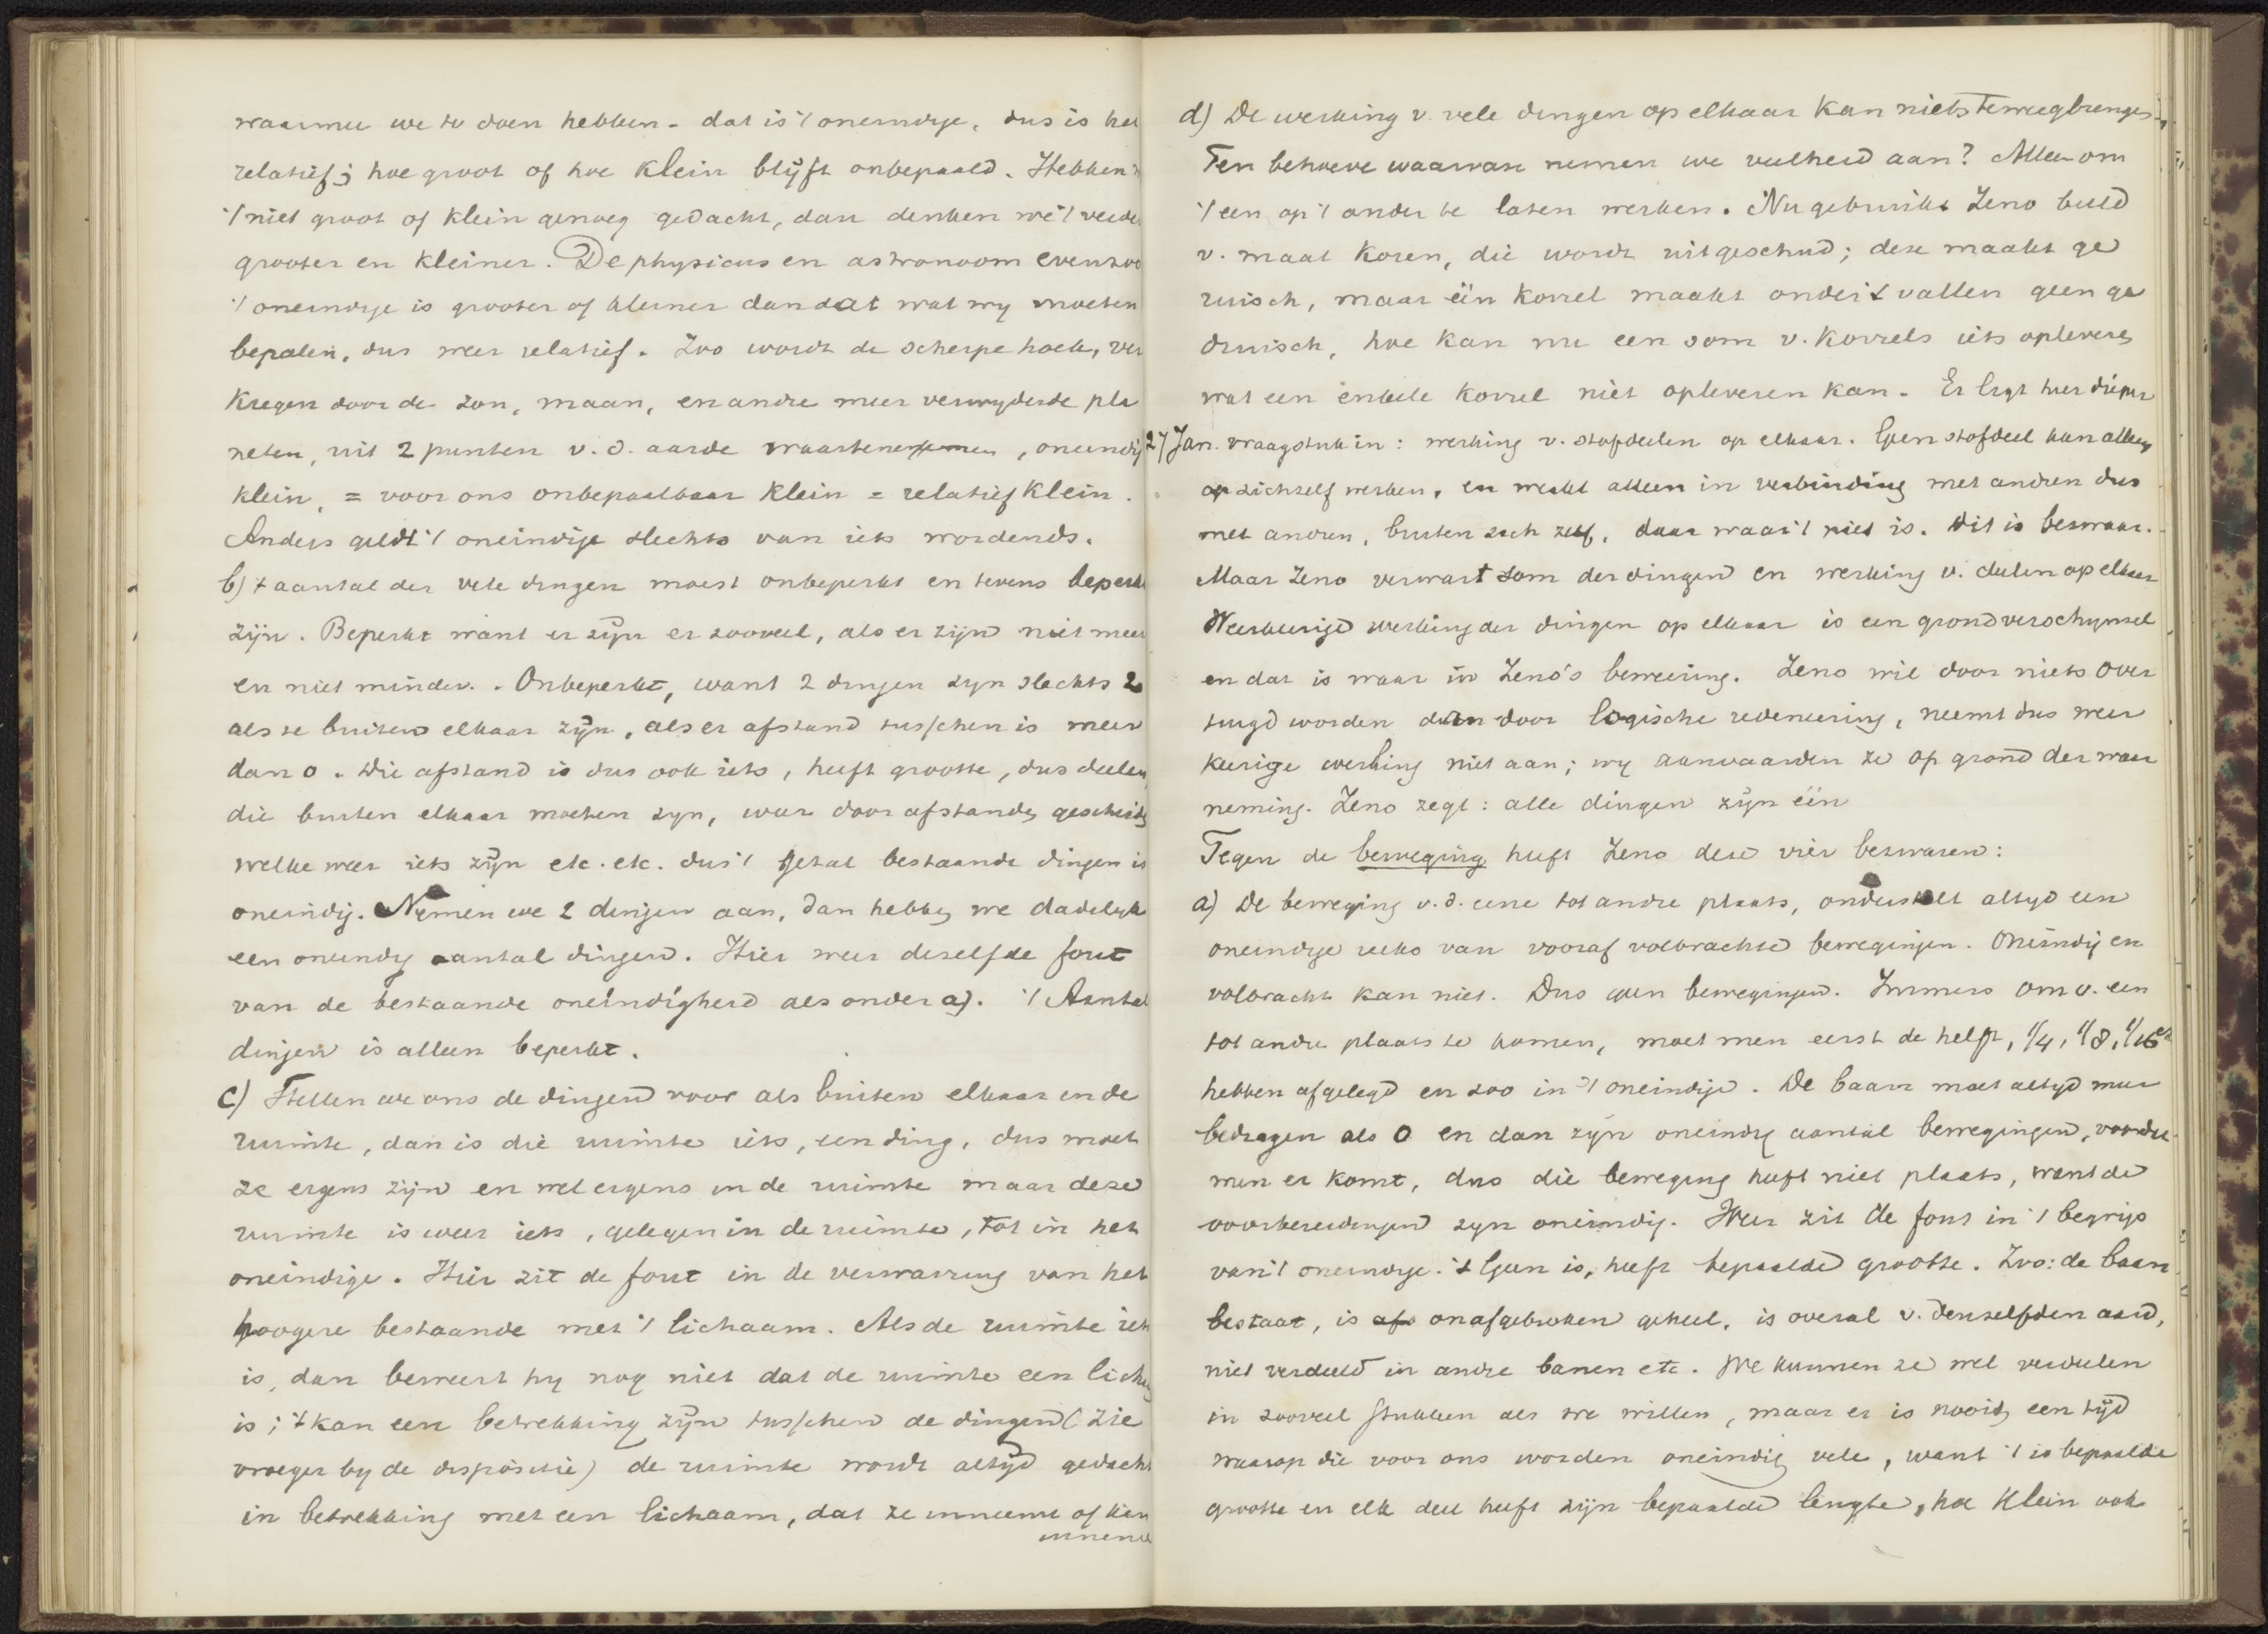 waarmee we te doen hebben - dat is 't oneindige, dus is het
relatief; hoe groot of hoe klein blijft onbepaald. Hebben
't niet groot of klein genoeg gedacht, dan denken we 't verder
grooter en kleiner. De physicus en astronoom evenzoo
't oneindige is grooter of kleiner dan dat wat wy moeten
bepalen, dus weer relatief. Zoo wordt de scherpe hoek, ver
kregen door de zon, maan, en andre meer verwyderde pla
neten, uit 2 punten v. d. aarde , oneindig
klein, = voor ons onbepaalbaar klein = relatief klein.
Anders geldt 't oneindige slechts van iets wordends.
b) 't aantal der vele dingen moest onbeperkt en tevens beperkt
zijn. Beperkt want er zijn er zooveel, als er zijn niet meer
en niet minder. Onbeperkt, want 2 dingen zyn slechts 2
als ze buiten elkaar zijn, als er afstand tusschen is meer
dan 0. Die afstand is dus ook iets, heeft grootte, dus deelen
die buiten elkaar moeten zyn, weer door afstanden gescheiden
welke weer iets zijn etc. etc. dus 't getal bestaande dingen is
oneindig. Nemen we 2 dingen aan, dan hebben we dadelyk
een oneindig aantal dingen. Hier weer dezelfde fout
van de bestaande oneindigheid als onder a). 't Aantal
dingen is alleen beperkt.
c) Stellen we ons de dingen voor als buiten elkaar in de
ruimte, dan is die ruimte iets, een ding, dus moet
ze ergens zijn en wel ergens in de ruimte maar deze
ruimte is weer iets, gelegen in de ruimte, tot in het
oneindige. Hier zit de fout in de verwarring van het
hoogere bestaande met 't lichaam. Als de ruimte iets
is, dan beweert hy nog niet dat de ruimte een lichaam
is; 't kan een betrekking zijn tusschen de dingen (zie
vroeger by de dispositie) de ruimte wordt altijd gedacht
in betrekking met een lichaam, dat ze inneemt of kan
innemen
d) De werking v. vele dingen op elkaar kan niets teweegbrengen.
Ten behoeve waarvan nemen we veelheid aan? Alleen om
't een op 't ander te laten werken. Nu gebruikt Zeno beeld
v. maat koren, die wordt uitgeschud; deze maakt ge
ruisch, maar één korrel maakt onder 't vallen geen ge
druisch, hoe kan nu een som v. korrels iets opleveren
wat een enkele korrel niet opleveren kan. Er ligt hier dieper
27 Jan. vraagstuk in: werking v. stofdeelen op elkaar. Geen stofdeel kan alleen
op zichzelf werken, en werkt alleen in verbinding met andren dus
met andren, buiten zich zelf, daar waar 't niet is. Dit is bezwaar.
Maar Zeno verwart som der dingen en werking v. deelen op elkaar
Weerkeerige werking der dingen op elkaar is een grondverschynsel
en dat is waar in Zeno's bewering. Zeno wil door niets over
tuigd worden dan door logische redeneering, neemt dus weer
keerige werking niet aan; wy aanvaarden ze op grond der waar
neming. Zeno zegt: alle dingen zijn één
Tegen de beweging heeft Zeno deze vier bezwaren:
a) De beweging v. d. eene tot andre plaats, onderstelt altyd een
oneindige reeks van vooraf volbrachte bewegingen. Oneindig en
volbracht kan niet. Dus geen bewegingen. Immers om v. een
tot andre plaats te komen, moet men eerst de helft, 1/4, 1/8, 1/16e
hebben afgelegd en zoo in 't oneindige. De baan moet altyd meer
bedragen als 0 en dan zyn oneindig aantal bewegingen, voordat
men er komt, dus die beweging heeft niet plaats, want de
voorbereidingen zyn oneindig. Weer zit de fout in 't begrip
van 't oneindige. 't Geen is, heeft bepaalde grootte. Zoo: de baan
bestaat, is afs onafgebroken geheel, is overal v. denzelfden aard,
niet verdeeld in andre banen etc. We kunnen ze wel verdeelen
in zooveel stukken als we willen, maar er is nooit een tijd
waarop die voor ons worden oneindig vele, want 't is bepaalde
grootte en elk deel heeft zijn bepaalde lengte, hoe klein ook